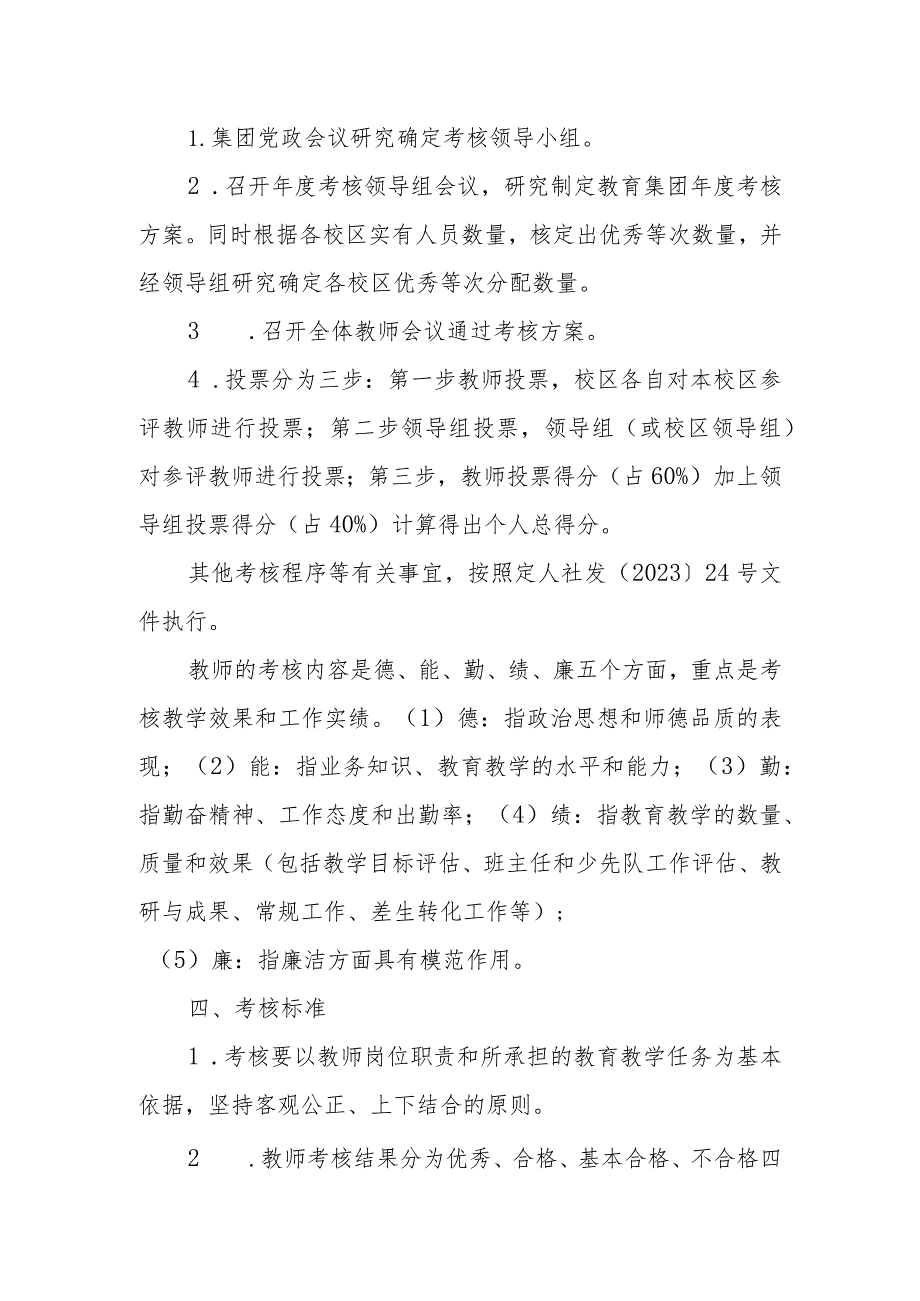 1.集团党政会议研究确定考核领导小组。
2 .召开年度考核领导组会议，研究制定教育集团年度考核
方案。同时根据各校区实有人员数量，核定出优秀等次数量，并
经领导组研究确定各校区优秀等次分配数量。
3 .召开全体教师会议通过考核方案。
4 .投票分为三步：第一步教师投票，校区各自对本校区参
评教师进行投票；第二步领导组投票，领导组（或校区领导组）
对参评教师进行投票；第三步，教师投票得分（占 60%）加上领
导组投票得分（占 40%）计算得出个人总得分。
其他考核程序等有关事宜，按照定人社发（2023〕24 号文
件执行。
教师的考核内容是德、能、勤、绩、廉五个方面，重点是考
核教学效果和工作实绩。（1）德：指政治思想和师德品质的表
现；（2）能：指业务知识、教育教学的水平和能力；（3）勤：
指勤奋精神、工作态度和出勤率；（4）绩：指教育教学的数量、
质量和效果（包括教学目标评估、班主任和少先队工作评估、教
研与成果、常规工作、差生转化工作等）;
（5）廉：指廉洁方面具有模范作用。
四、考核标准
1 .考核要以教师岗位职责和所承担的教育教学任务为基本
依据，坚持客观公正、上下结合的原则。
2 .教师考核结果分为优秀、合格、基本合格、不合格四